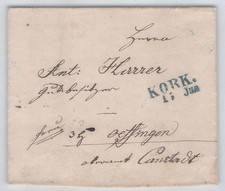 Herrn
Ant: Harrer
Gutsbesitzer
KORK.
17 Jun
in
Oeffingen
oberamt Canstadt